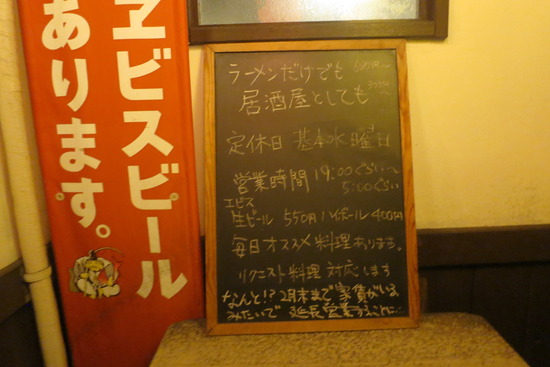 ヱビスビール
あります。
ラーメンだけでも
居酒屋としても
定休日 基本水曜日
営業時間 19:00ぐらい〜
5:00ぐらい
エビス
生ビール 550円 ハイボール 400円
毎日オススメ料理あります。
リクエスト料理 対応します
なんと!? 2月末まで家賃がいる
みたいで 延長営業することに…